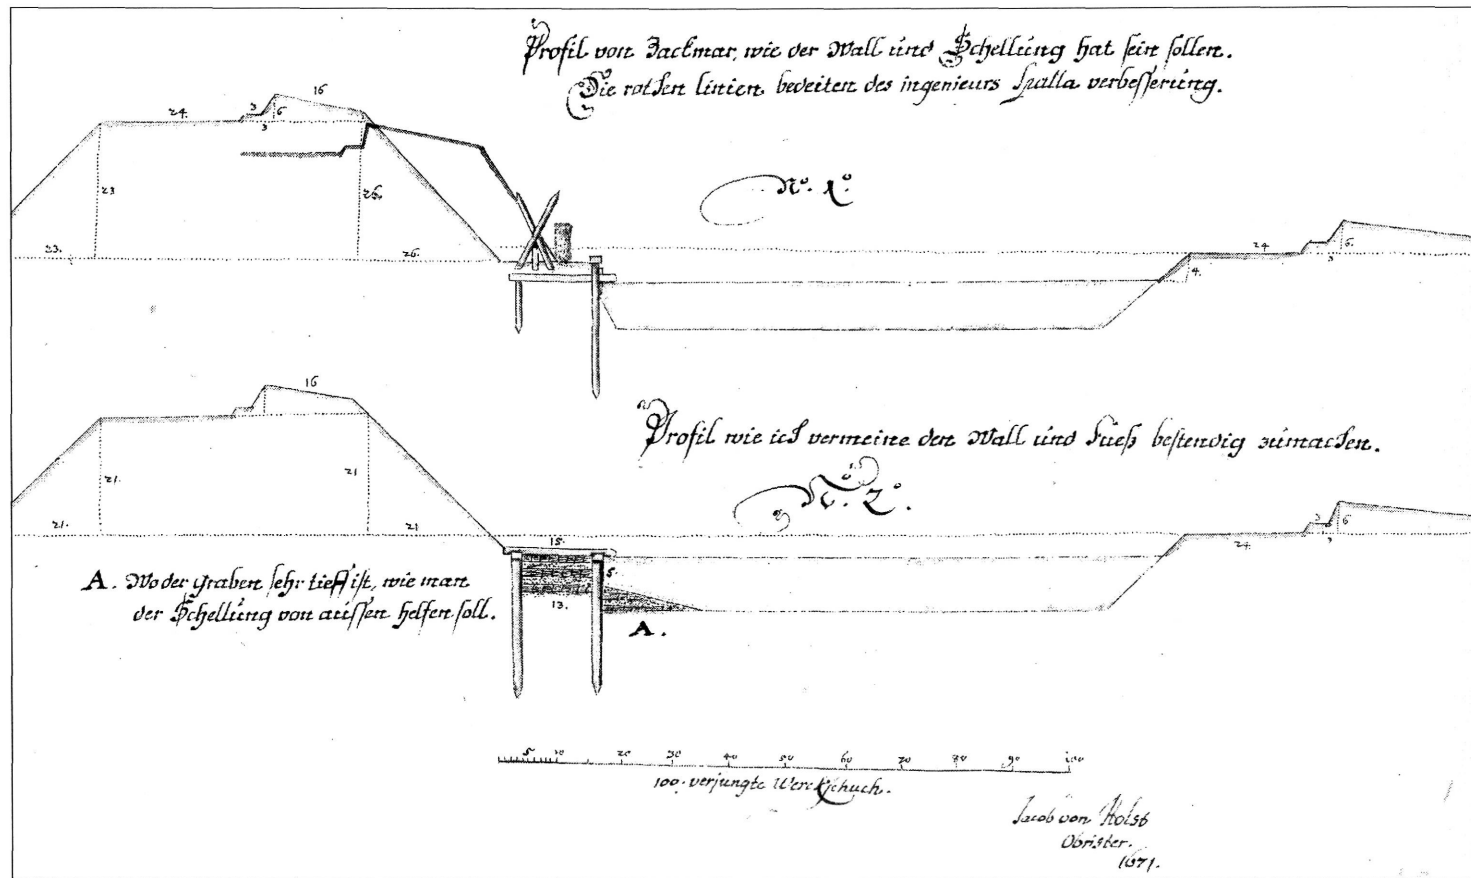 Profil von Zackmar, wie der Wall und Schellung hat sein sollen.
Die rothen linien bedeiten des ingenieurs Spalla verbesserung.
16
24.
3
6
3
23
26.
23.
26.
No. 1o
24
6.
3
4.
16
Profil wie ich vermeine den Wall und Fuesß bestendig zumachen.
No. 2o.
21.
21
21.
21
15.
5
13.
3
6
24
A. Wo der graben sehr tieff ist, wie man
der Schellung von aussen helfen soll.
A.
5 10 20 30 40 50 60 70 80 90 100
100. verjungte Werckschuch.
Jacob von Holst
Obrister.
1671.